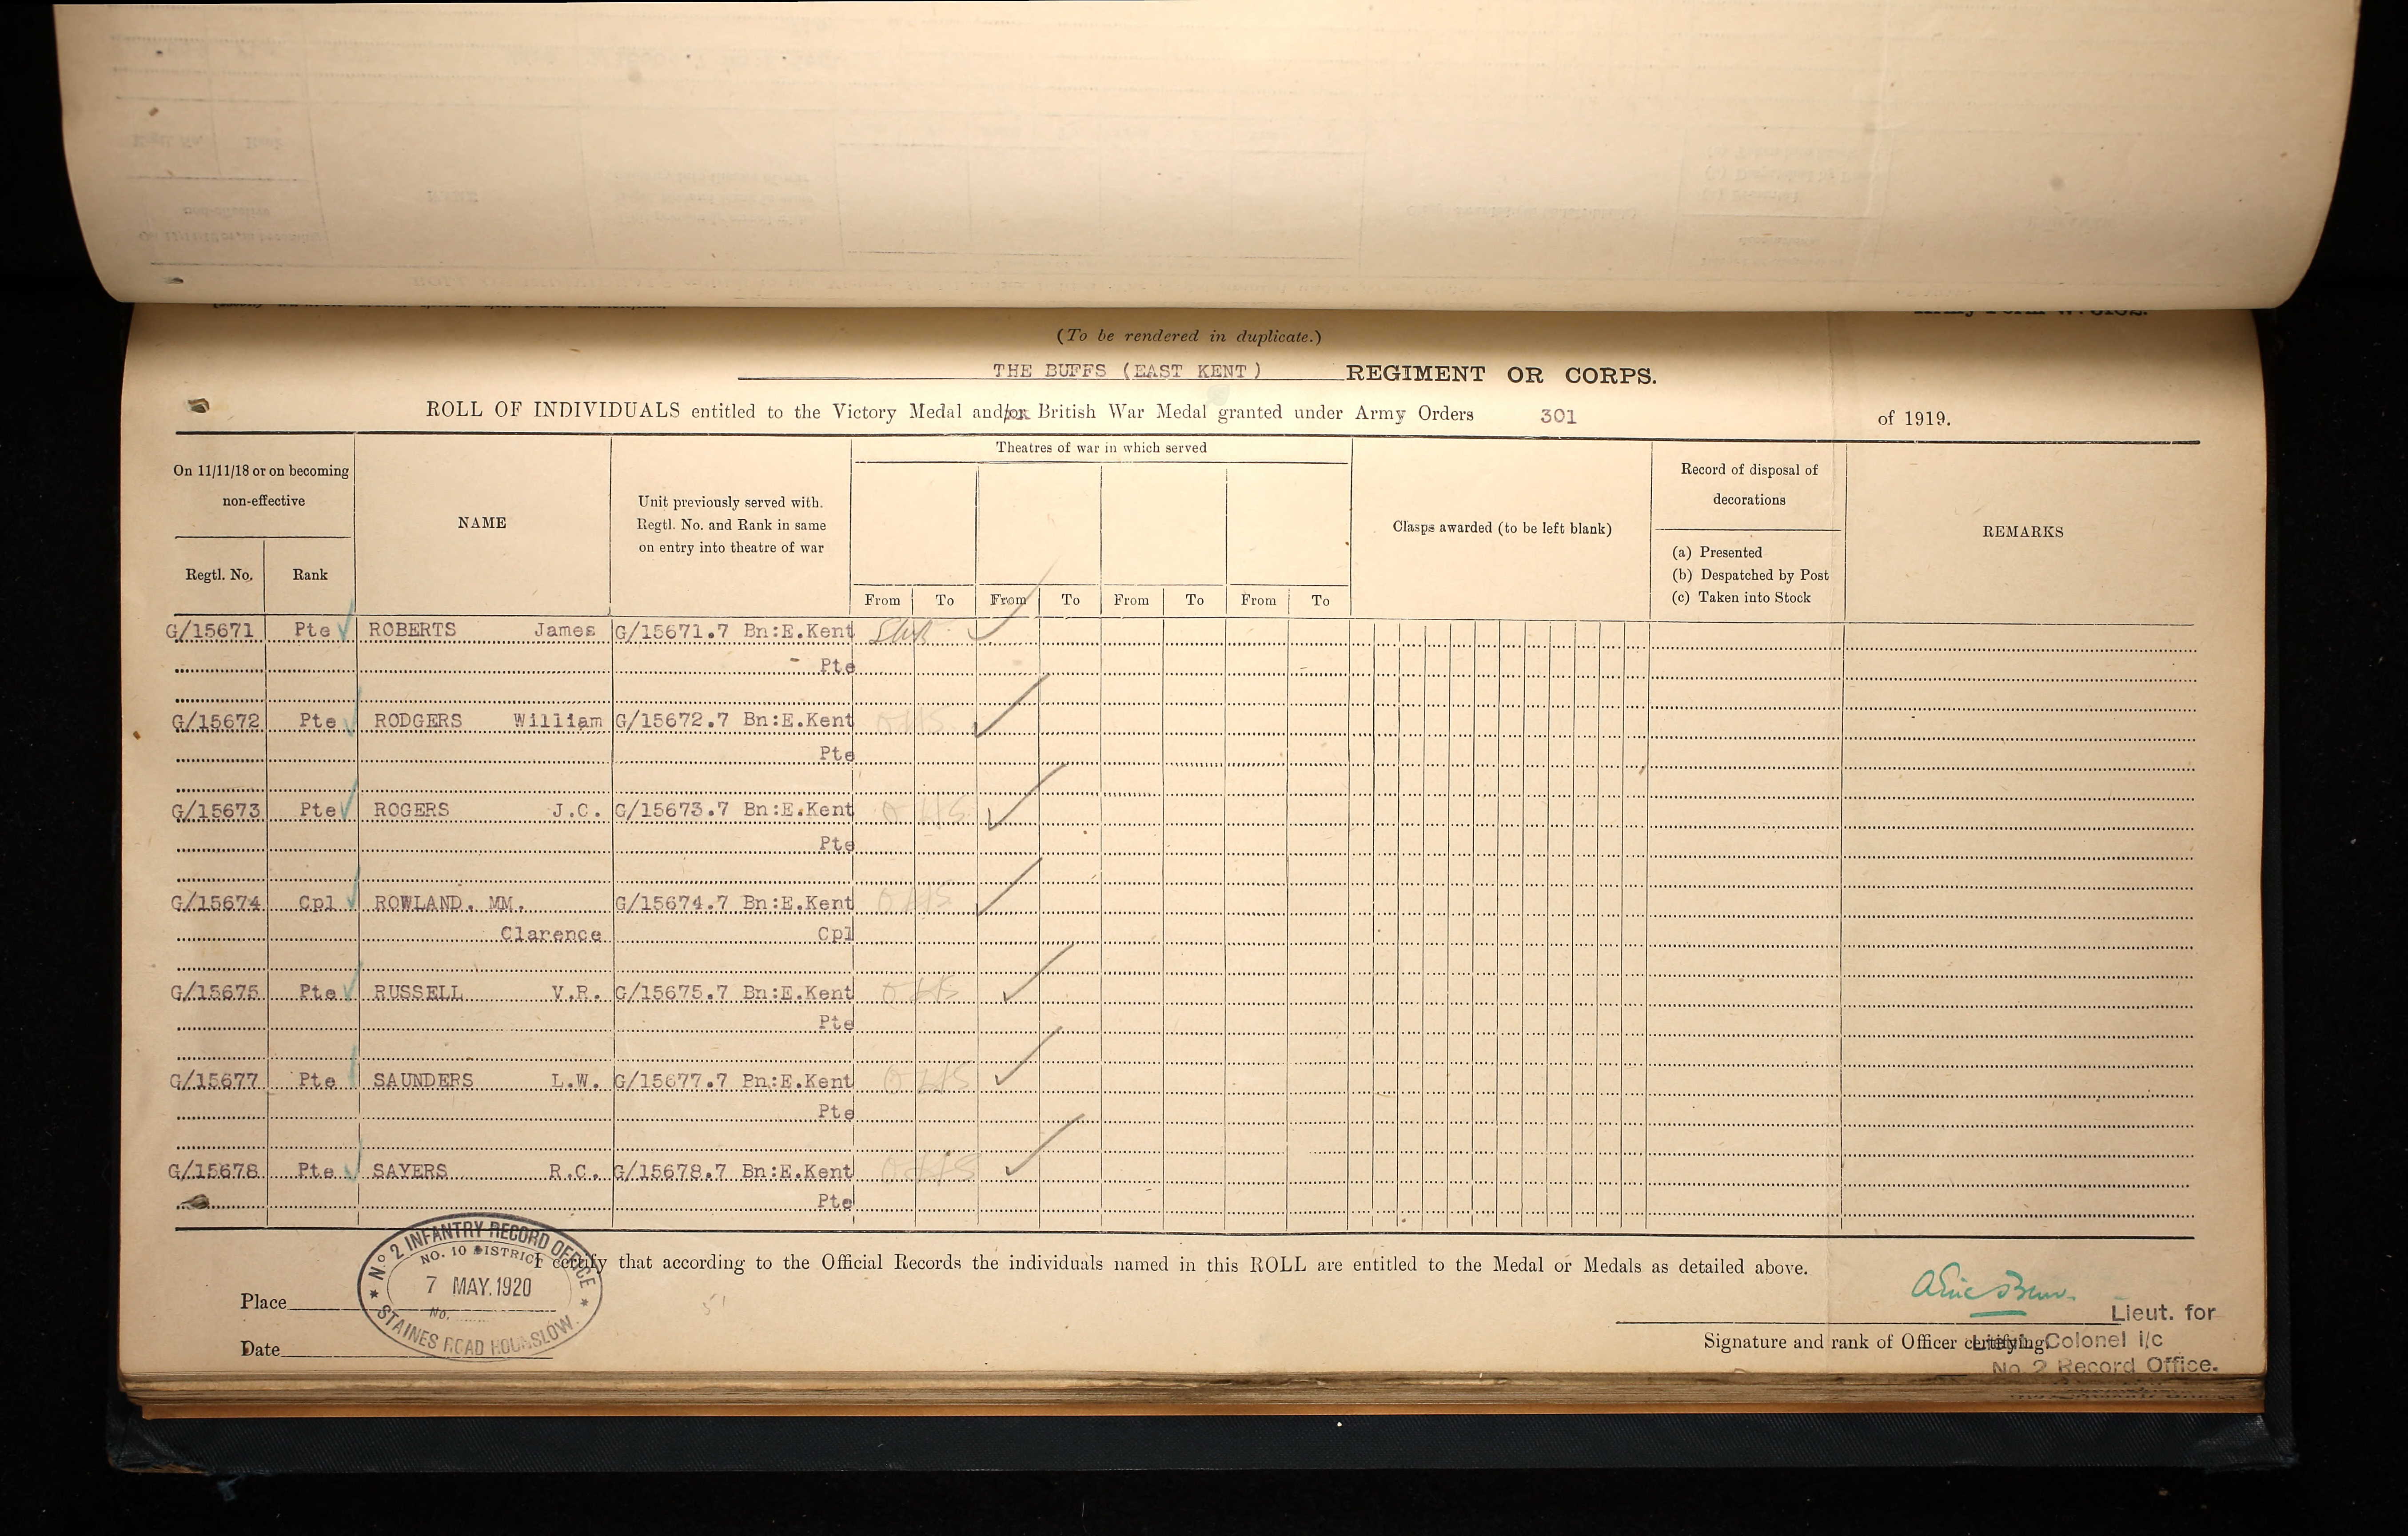 (To be rendered in duplicate.)
THE BUFFS (EAST KENT) REGIMENT OR CORPS.
ROLL OF INDIVIDUALS entitled to the Victory Medal and/or British War Medal granted under Army Orders 301 of 1919.
On 11/11/18 or on becoming non-effective
Regtl. No.
Rank
NAME
Unit previously served with.
Regtl. No. and Rank in same
on entry into theatre of war
Theatres of war in which served
From To From To From To From To
Clasps awarded (to be left blank)
Record of disposal of
decorations
(a) Presented
(b) Despatched by Post
(c) Taken into Stock
REMARKS
G/15671 Pte ROBERTS James G/15671.7 Bn:E.Kent
Pte
G/15672 Pte RODGERS William G/15672.7 Bn:E.Kent
Pte
G/15673 Pte ROGERS J.C. G/15673.7 Bn:E.Kent
Pte
G/15674 Cpl ROWLAND. MM. G/15674.7 Bn:E.Kent
Clarence Cpl
G/15675 Pte RUSSELL V.R. G/15675.7 Bn:E.Kent
Pte
G/15677 Pte SAUNDERS L.W. G/15677.7 Bn:E.Kent
Pte
G/15678 Pte SAYERS R.C. G/15678.7 Bn:E.Kent
Pte
I certify that according to the Official Records the individuals named in this ROLL are entitled to the Medal or Medals as detailed above.
No 2 INFANTRY RECORD OFFICE
NO. 10 DISTRICT
7 MAY. 1920
No.
STAINES ROAD HOUNSLOW.
Place
Date
Lieut. for
Signature and rank of Officer certifying.
Lieut. Colonel i/c
No. 2 Record Office.